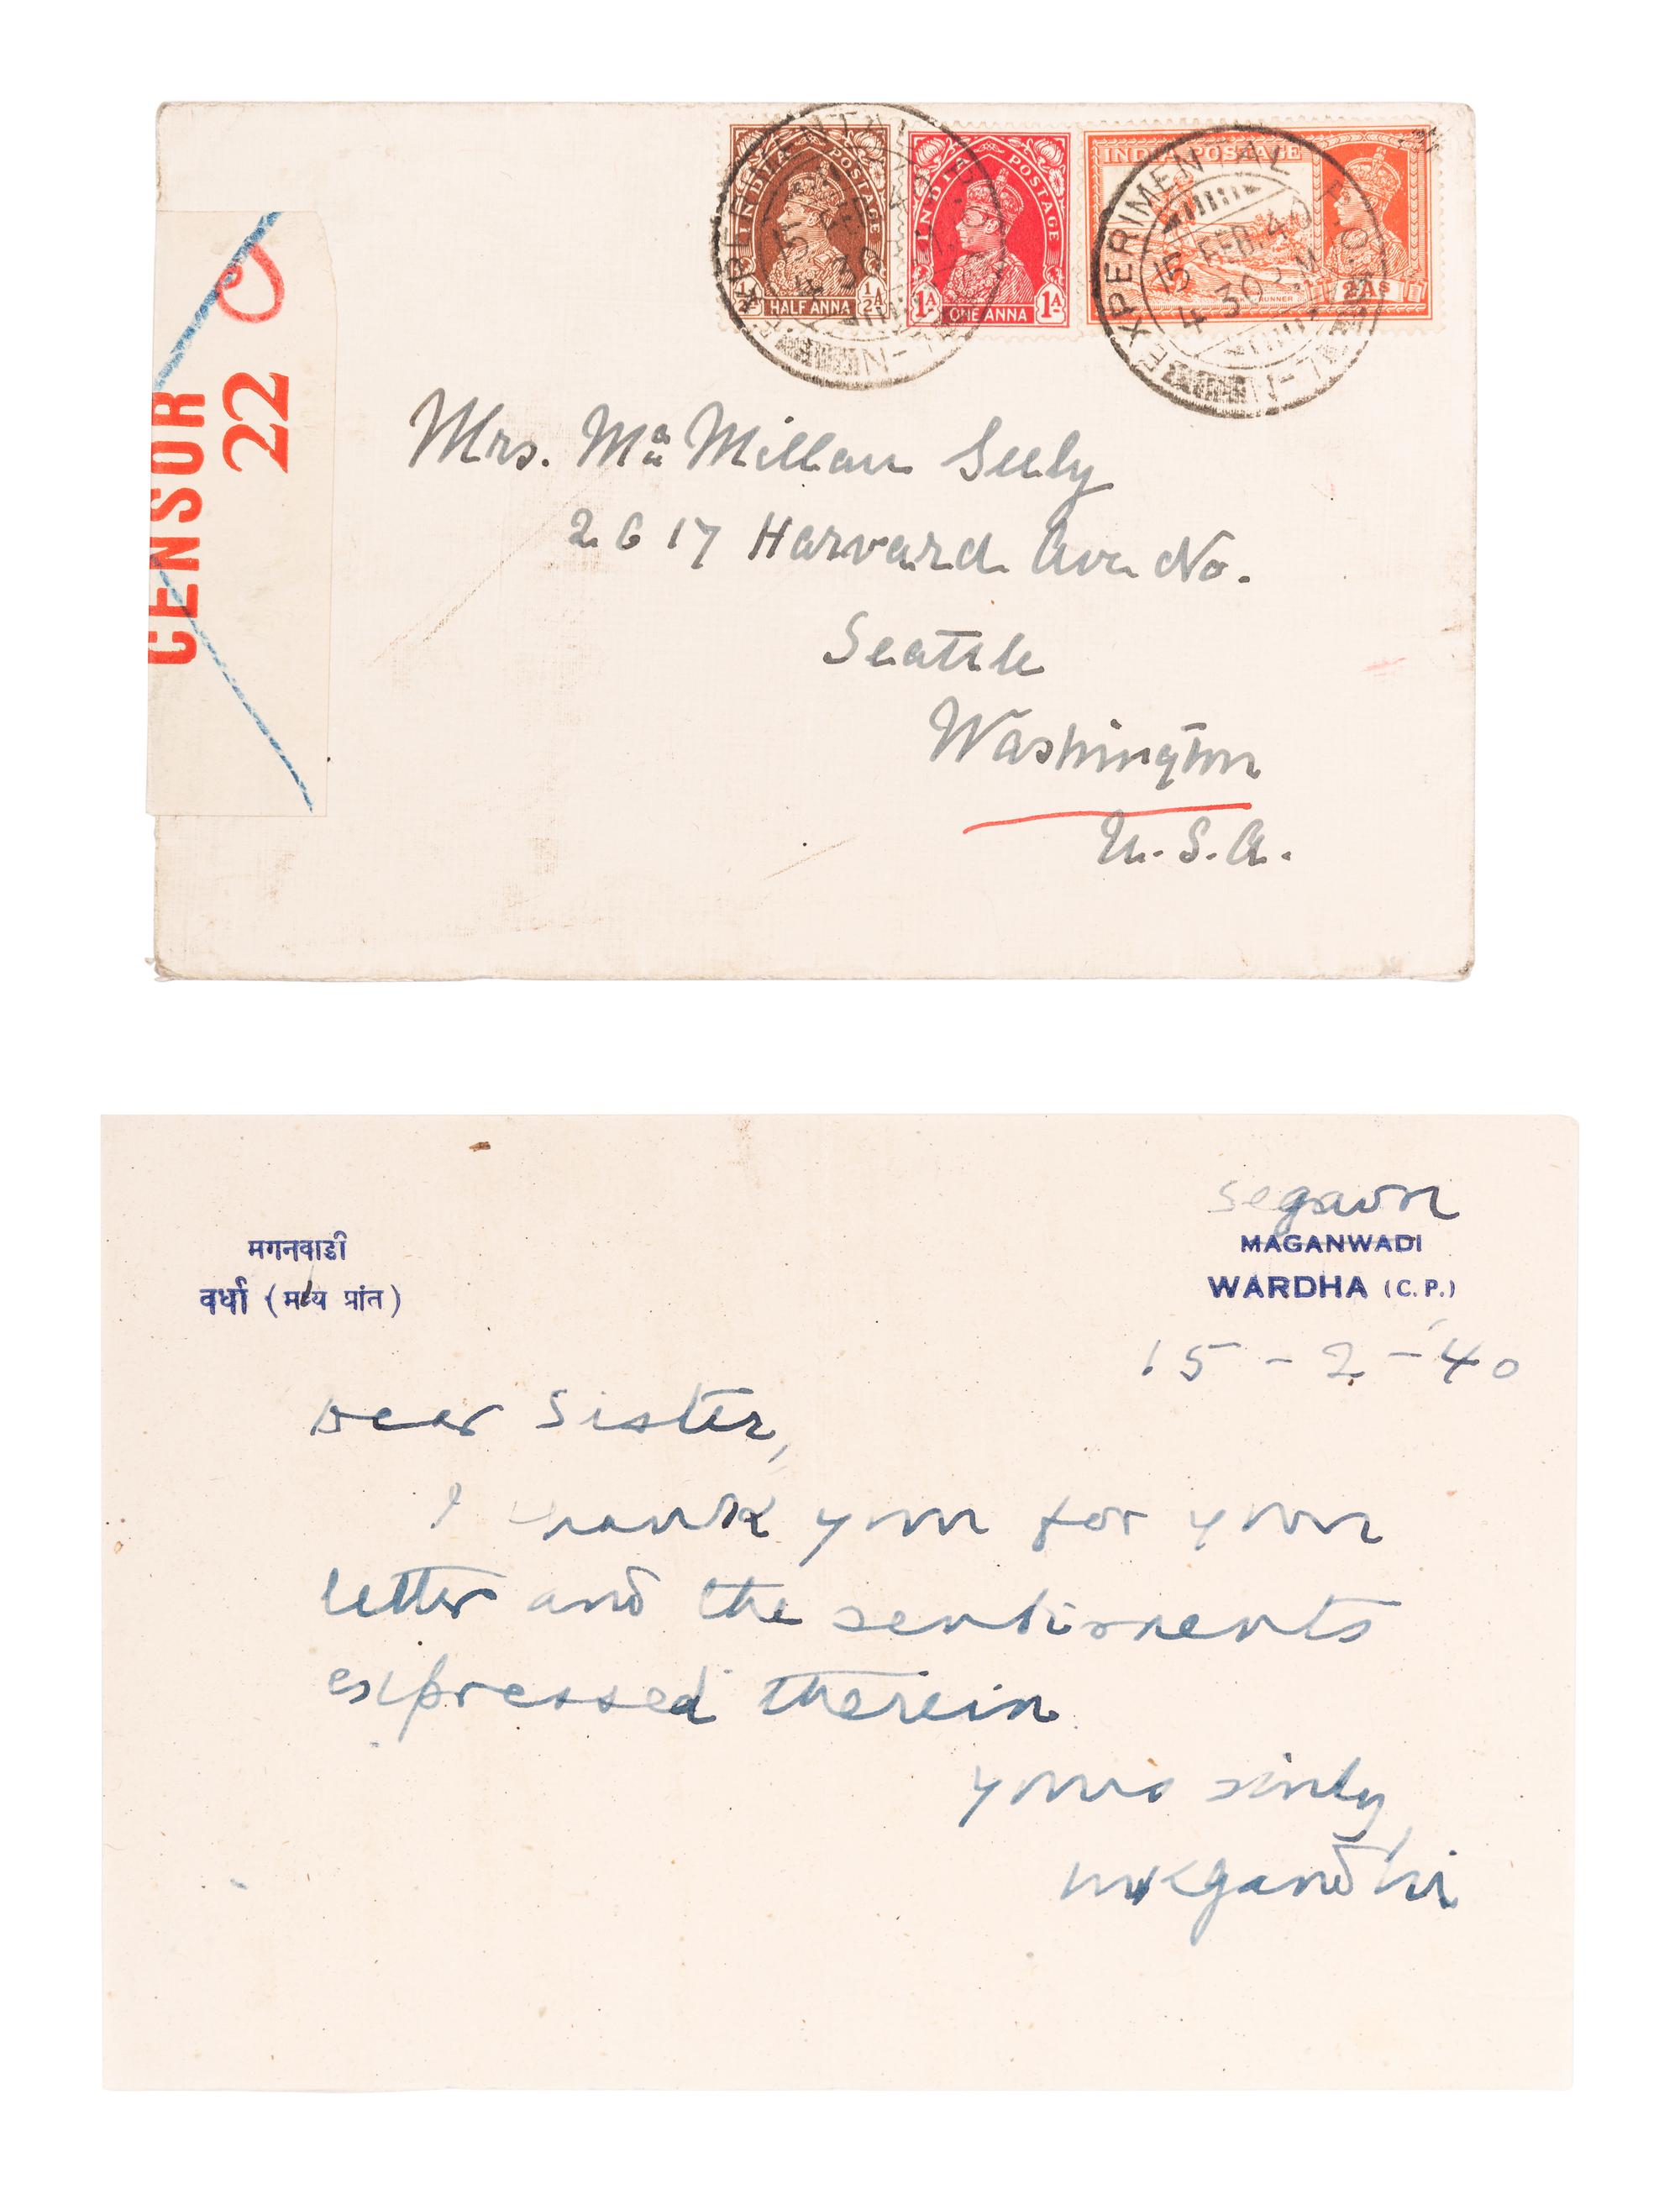 INDIA POSTAGE
HALF ANNA
½A
INDIA POSTAGE
1A ONE ANNA 1A
INDIA POSTAGE
RUNNER
2AS
EXPERIMENTAL P.O.
15 FEB. 40
4 30 P.M.
CENSOR
22
Mrs. Mc Millan Seely
2617 Harvard Ave No.
Seattle
Washington
U.S.A.
मगनवाडी
वर्धा (मध्य प्रांत)
Segaon
MAGANWADI
WARDHA (C. P.)
15-2-'40
Dear Sister,
I thank you for your
letter and the sentiments
expressed therein
yours sinly
MKGandhi